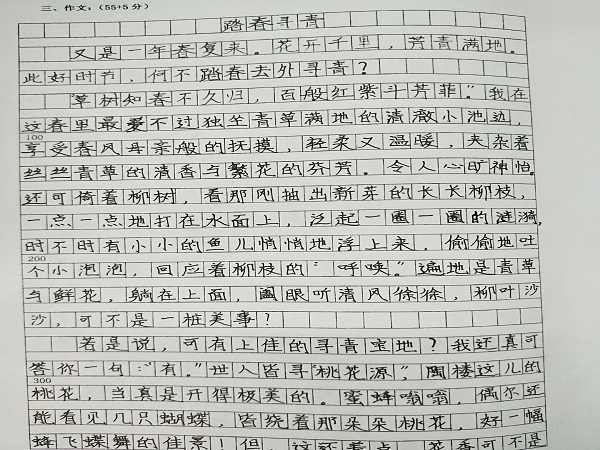 三、作文:(55+5分)
踏春寻青
又是一年春复来。花开千里,芳青满地。
此好时节,何不踏春去外寻青?
“草树知春不久归,百般红紫斗芳菲。”我在
这春里最爱不过独坐青草满地的清澈小池边,
100
享受春风母亲般的抚摸,轻柔又温暖,夹杂着
丝丝青草的清香与繁花的芬芳。令人心旷神怡。
还可倚着柳树,看那刚抽出新芽的长长柳枝,
一点一点地打在水面上,泛起一圈一圈的涟漪,
时不时有小小的鱼儿悄悄地浮上来,偷偷地吐
200
个小泡泡,回应着柳枝的“呼唤。”遍地是青草
与鲜花,躺在上面,阖眼听清风徐徐,柳叶沙
沙,可不是一桩美事?
若是说,可有上佳的寻青宝地?我还真可
答你一句:“有。”世人皆寻“桃花源”,阁楼这儿的
300
桃花,当真是开得极美的。蜜蜂嗡嗡,偶尔还
能看见几只蝴蝶,皆绕着那朵朵桃花,好一幅
蜂飞蝶舞的佳景!但,这还差点,花香可不是